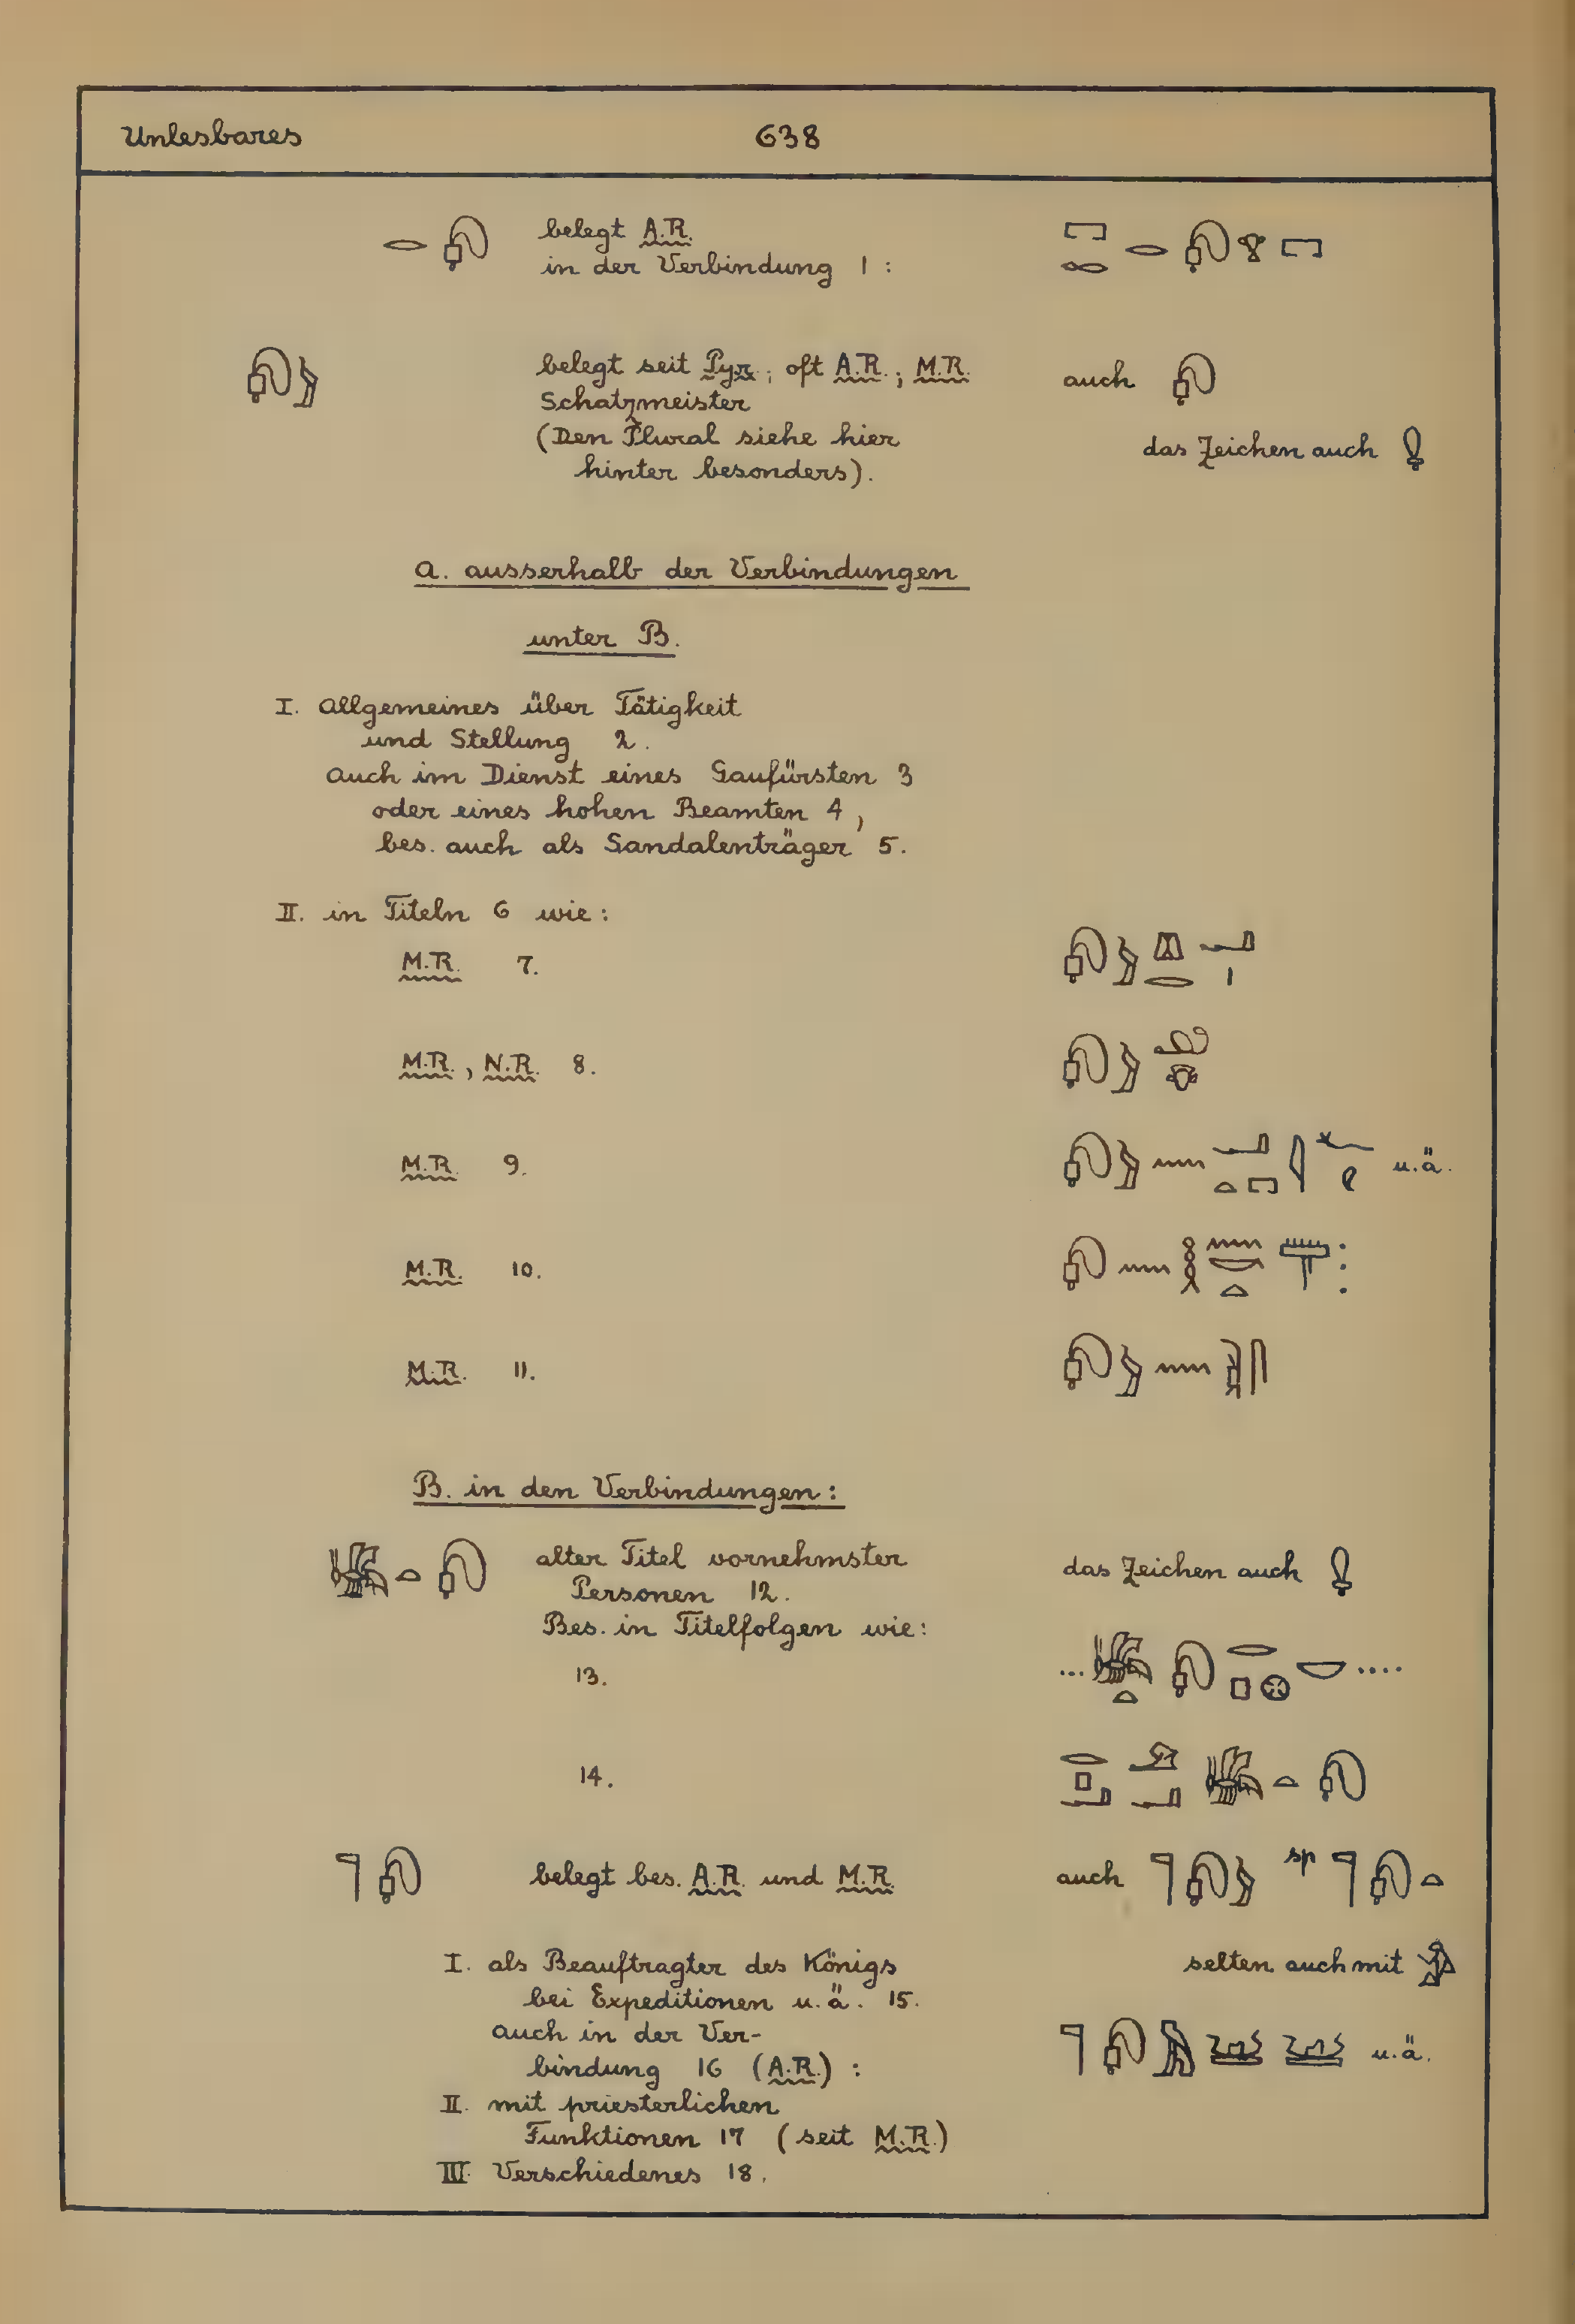 Unlesbares 638
belegt A.R.
in der Verbindung 1 :
belegt seit Pyr.; oft A.R.; M.R. auch
Schatzmeister
(Den Plural siehe hier das Zeichen auch
hinter besonders).
a. ausserhalb der Verbindungen
unter B.
I. Allgemeines über Tätigkeit
und Stellung 2.
auch im Dienst eines Gaufürsten 3
oder eines hohen Beamten 4,
bes. auch als Sandalenträger 5.
II. in Titeln 6 wie:
M.R. 7.
M.R., N.R. 8.
M.R. 9. u.ä.
M.R. 10.
M.R. 11.
B. in den Verbindungen:
alter Titel vornehmster das Zeichen auch
Personen 12.
Bes. in Titelfolgen wie:
13. ... ....
14.
belegt bes. A.R. und M.R. auch sp
I. als Beauftragter des Königs selten auch mit
bei Expeditionen u.ä. 15.
auch in der Ver- u.ä.
bindung 16 (A.R.) :
II. mit priesterlichen
Funktionen 17 (seit M.R.)
III. Verschiedenes 18.